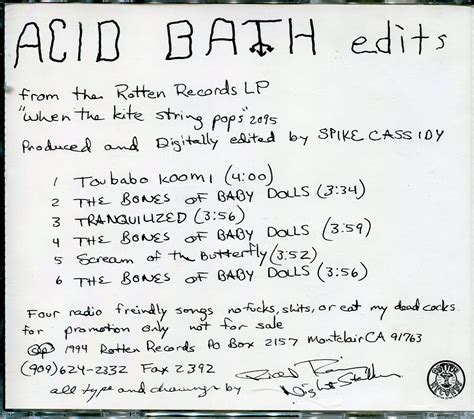 ACID BATH edits
from the Rotten Records LP
"when the kite string pops" 2095
Produced and Digitally edited by SPIKE CASSIDY
1 Toubabo koomi (4:00)
2 THE BONES OF BABY DOLLS (3:34)
3 TRANQUILIZED (3:56)
4 THE BONES OF BABY DOLLS (3:59)
5 Scream of the Butterfly (3:52)
6 THE BONES OF BABY DOLLS (3:56)
Four radio freindly songs no fucks, shits, or eat my dead cocks
for promotion only not for sale
©℗ 1994 Rotten Records PO Box 2157 Montclair CA 91763
(909) 624-2332 Fax 2392
all type and drawings by Night Stalker
ROTTEN RECORDS